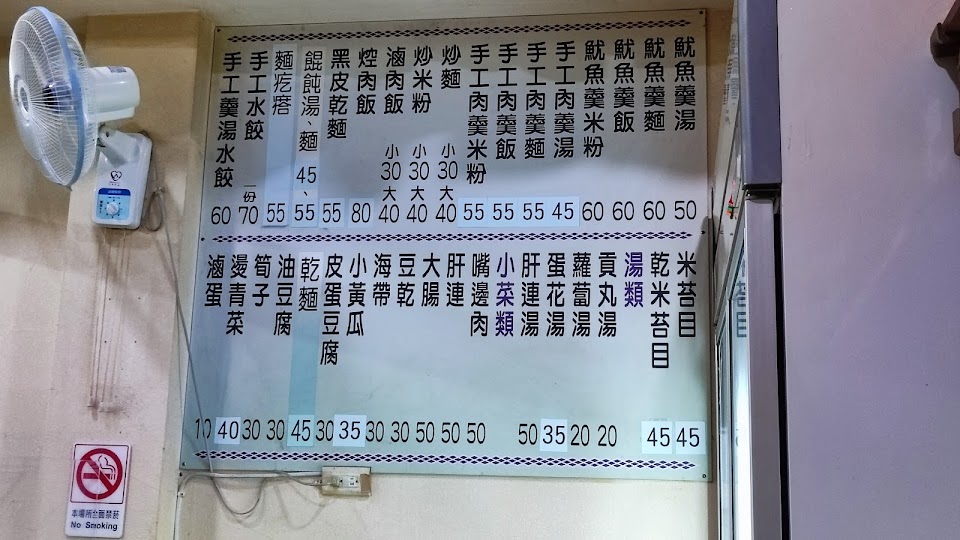 魷魚羹湯 50
魷魚羹麵 60
魷魚羹飯 60
魷魚羹米粉 60
手工肉羹湯 45
手工肉羹麵 55
手工肉羹飯 55
手工肉羹米粉 55
炒麵 小30大40
炒米粉 小30大40
滷肉飯 小30大40
焢肉飯 80
黑皮乾麵 55
餛飩湯、麵 45、55
麵疙瘩 55
手工水餃 一份70
手工羹湯水餃 60
米苔目 45
乾米苔目 45
湯類
貢丸湯 20
蘿蔔湯 20
蛋花湯 35
肝連湯 50
小菜類
嘴邊肉 50
肝連 50
大腸 50
豆乾 30
海帶 30
小黃瓜 35
皮蛋豆腐 30
乾麵 45
油豆腐 30
筍子 30
燙青菜 40
滷蛋 10
本場所全面禁菸
No Smoking